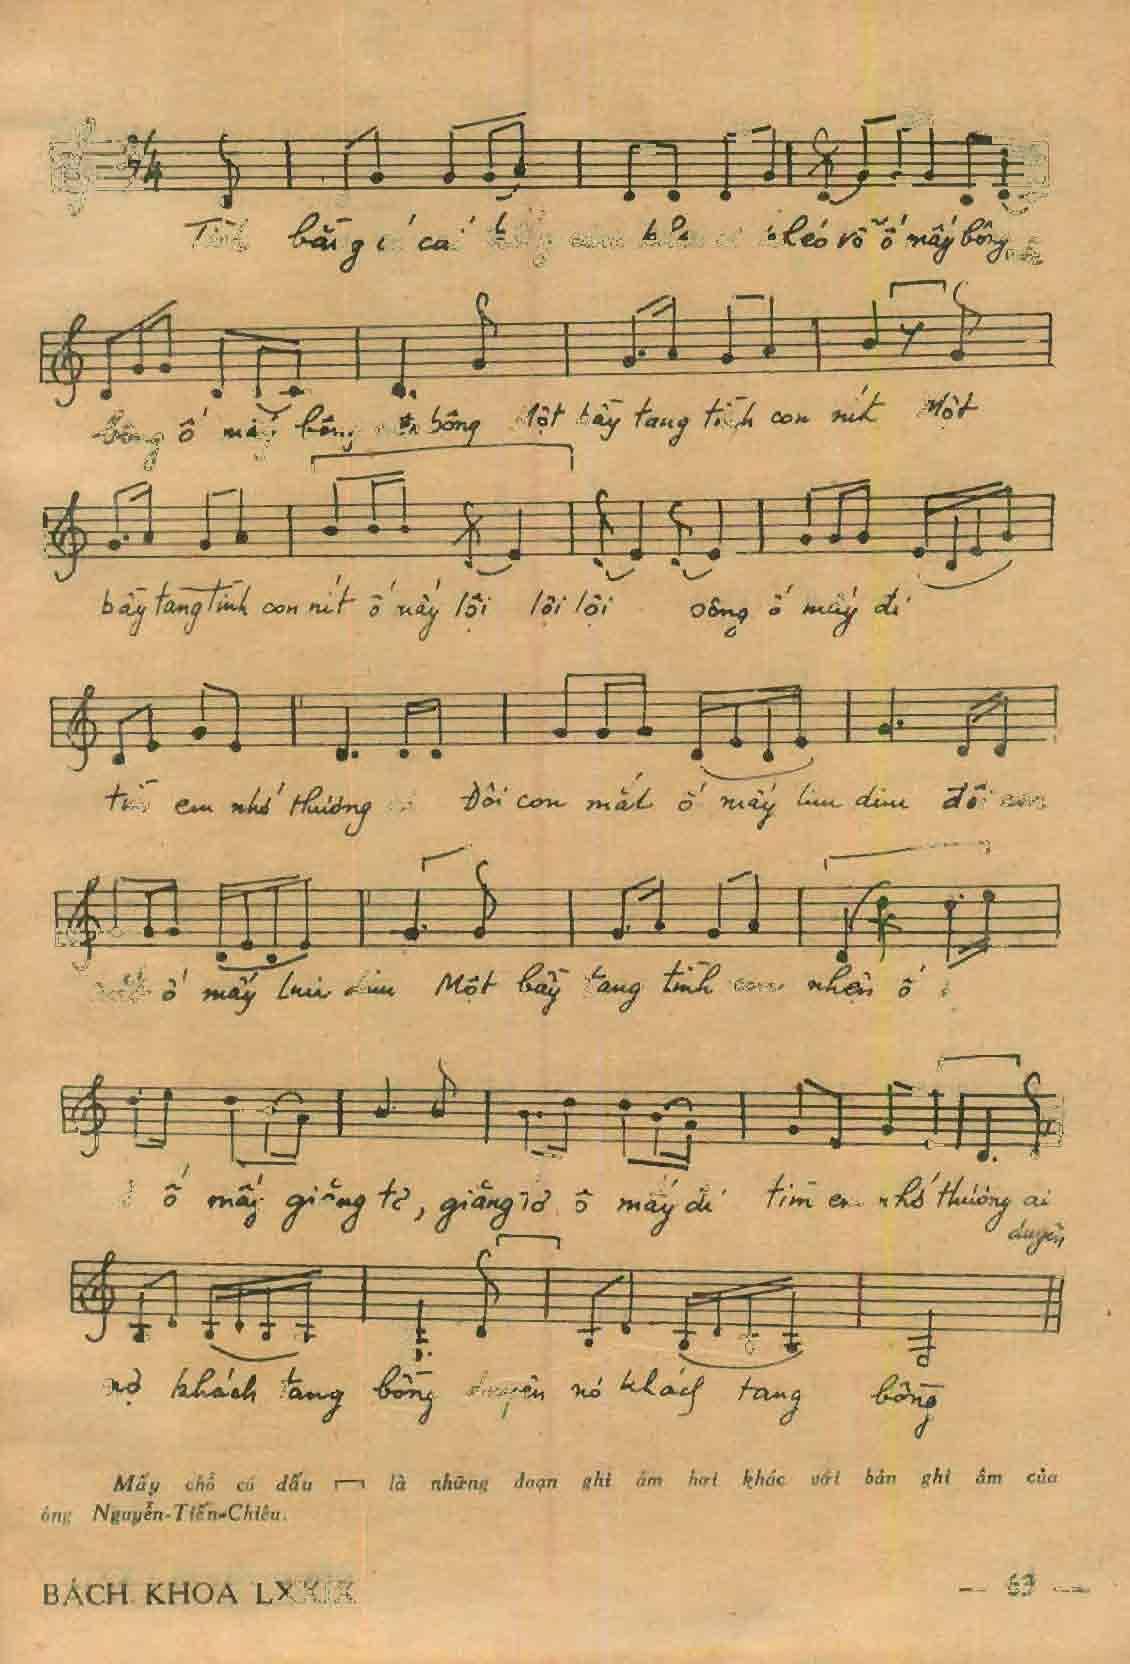 bằng cái khéo vỗ ố mấy bông
bông ố mấy bông bông Một bầy tang tình con nít Một
bầy tang tình con nít ố mấy lội lội lội sông ố mấy đi
em nhớ thương Đôi con mắt ố mấy lim dim đôi con
ố mấy lim dim Một bầy tang tình con nhện ố
ố mấy giăng tơ, giăng tơ ố mấy đi tìm em nhớ thương ai
duyên
nợ khách tang bồng duyên nợ khách tang bồng
Mấy chỗ có dấu ┌─┐ là những đoạn ghi âm hơi khác với bản ghi âm của
ông Nguyễn-Tiến-Chiêu.
BÁCH KHOA LXXIX
— 63 —